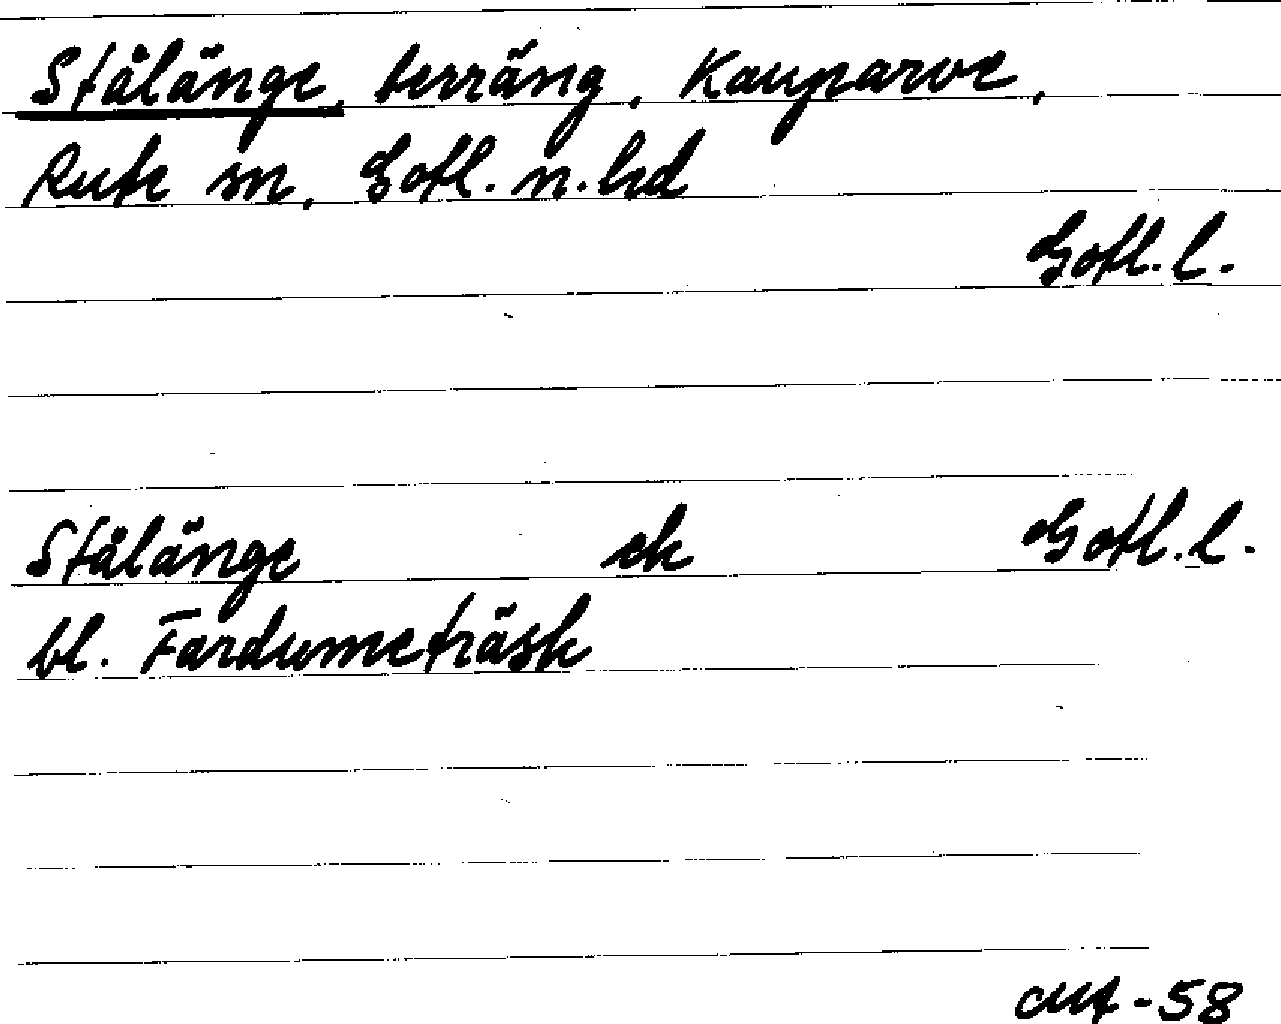 Stålänge, terräng, Kauparve,
Rute sn, Gotl. n. hd
Gotl. l.
Stålänge ek Gotl. l.
bl. Fardumeträsk
-58